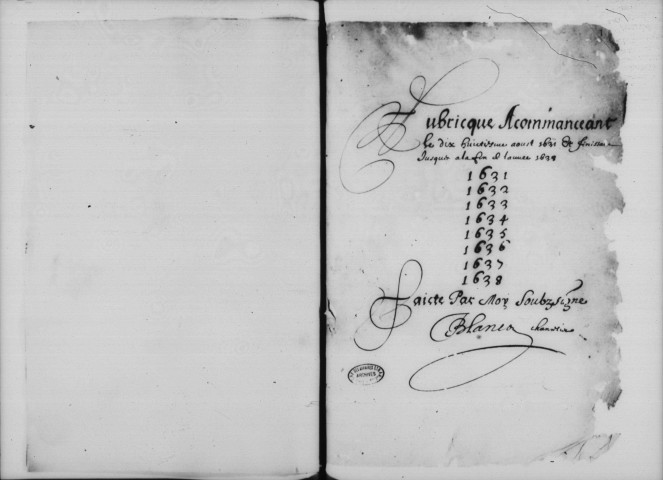 Rubricque Acommanceant
Le dix huictiesme aoust 1631 Et finissant
Jusques a la fin de lannee 1638
1631
1632
1633
1634
1635
1636
1637
1638
Faicte Par Moy Soubzsigne
Blanco
ARCHIVES